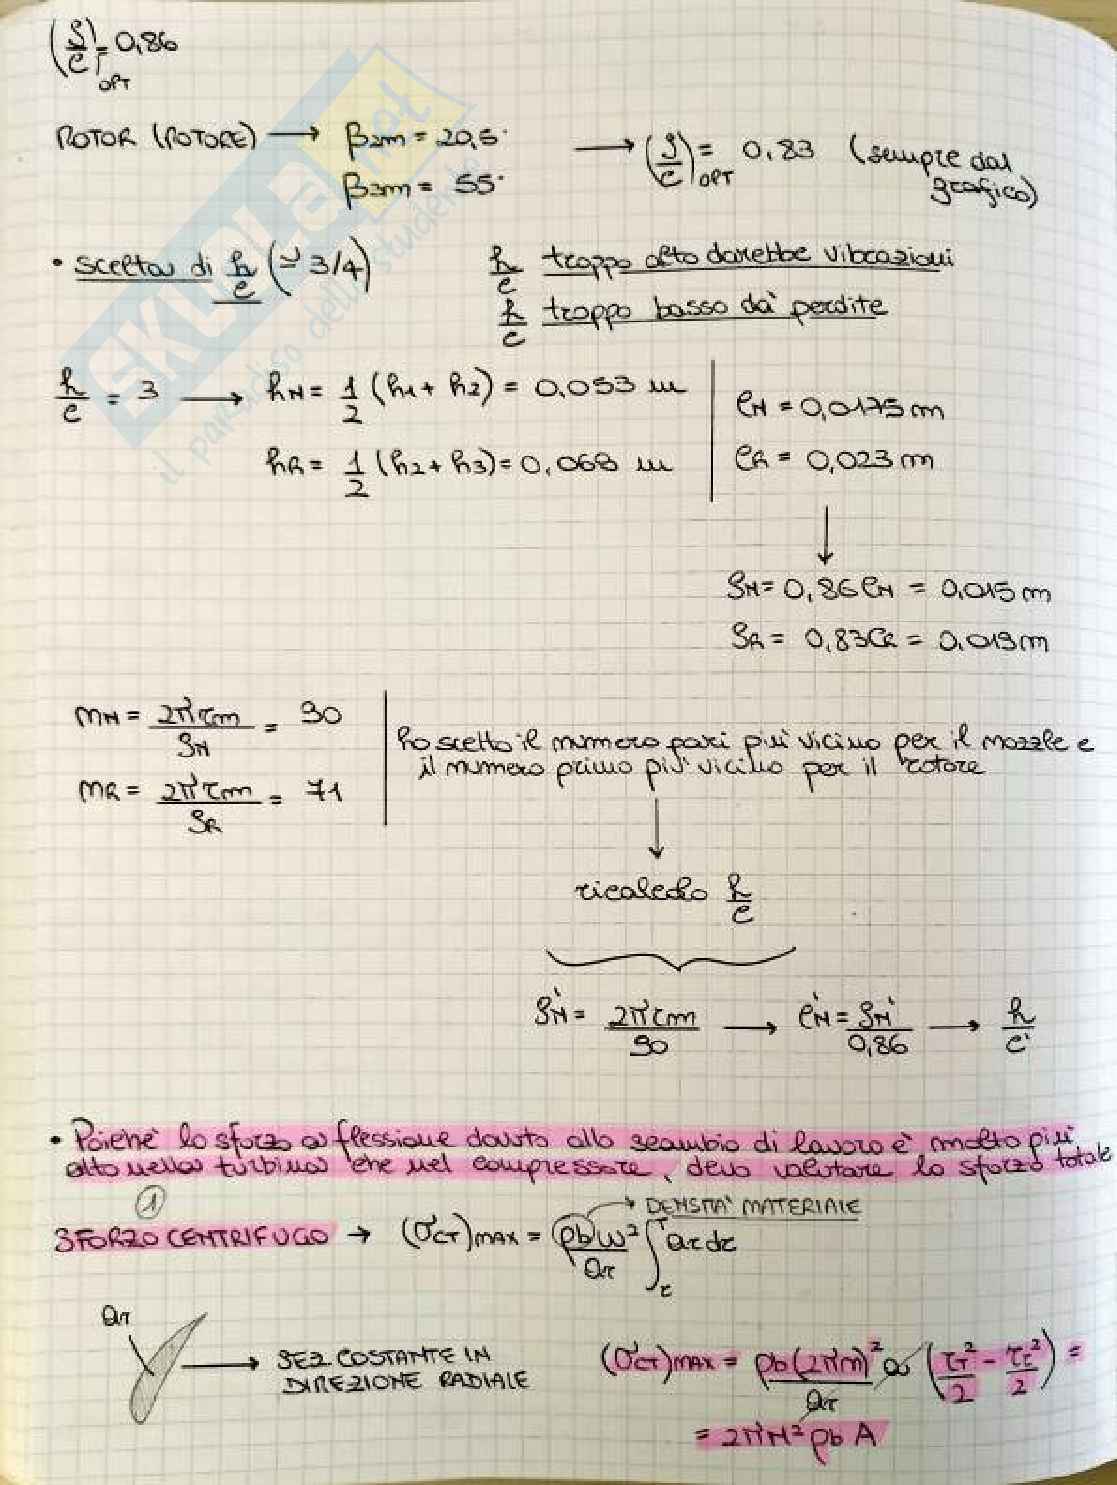 (S/c)OPT = 0,86
ROTOR (ROTORE) → β2m = 20,5° → (S/c)OPT = 0,83 (sempre dal grafico)
β3m = 55°
• scelta di h/c (≃ 3/4)
h/c troppo alto darebbe vibrazioni
h/c troppo basso dà perdite
h/c = 3 → hN = 1/2 (h1 + h2) = 0,053 m
hR = 1/2 (h2 + h3) = 0,068 m
cN = 0,0175 m
cR = 0,023 m
↓
SN = 0,86 cN = 0,015 m
SR = 0,83 cR = 0,019 m
mN = 2π rm / SN = 90
mR = 2π rm / SR = 71
ho scelto il numero pari più vicino per il nozzle e
il numero primo più vicino per il rotore
↓
ricalcolo h/c
S'N = 2π rm / 90 → c'N = S'N / 0,86 → h/c'
• Poiché lo sforzo a flessione dovuto allo scambio di lavoro è molto più
alto nella turbina che nel compressore, devo valutare lo sforzo totale
①
SFORZO CENTRIFUGO → (σCT)MAX = ρb ω² / ar ∫ a r dr
→ DENSITA' MATERIALE
ar
→ SEZ COSTANTE IN
DIREZIONE RADIALE
(σCT)MAX = ρb (2πn)² / ar a (rT²/2 - rr²/2) =
= 2πN² ρb A
SKUOLA.net
il paradiso dello studente